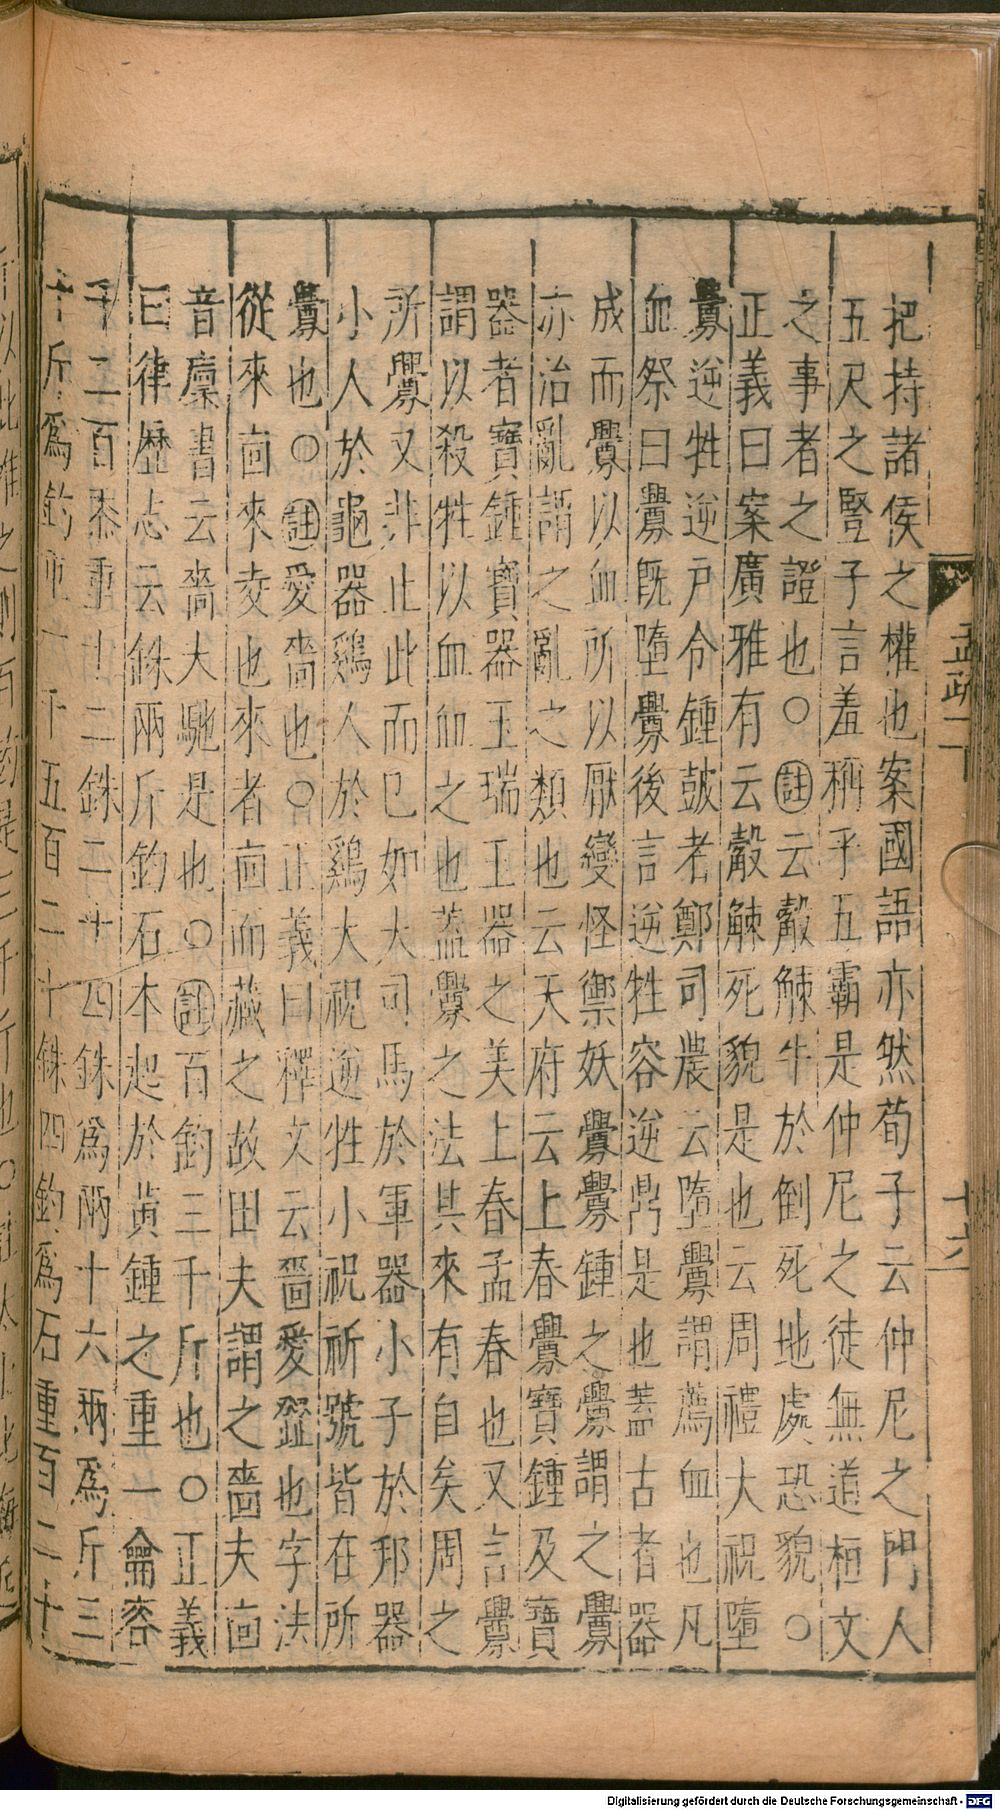 把持諸侯之權也案國語亦然荀子云仲尼之門人
五尺之豎子言羞稱乎五霸是仲尼之徒無道桓文
之事者之證也○註云觳觫牛於倒死地處恐貌○
正義曰案廣雅有云觳觫死貌是也云周禮大祝墮
釁逆牲逆尸令鍾鼓者鄭司農云墮釁謂薦血也凡
血祭曰釁既墮釁後言逆牲容逆鼎是也蓋古者器
成而釁以血所以厭變怪禦妖釁釁鍾之釁謂之釁
亦治亂謂之亂之類也云天府云上春釁寶鍾及寶
器者寶鍾寶器玉瑞玉器之美上春孟春也又言釁
謂以殺牲以血血之也蓋釁之法其來有自矣周之
所釁又非止此而已如大司馬於軍器小子於邦器
小人於龜器鷄人於鷄大祝逆牲小祝祈號皆在所
釁也○註愛嗇也○正義曰釋文云嗇愛歰也字法
從來㐭來麥也來者㐭而藏之故田夫謂之嗇夫㐭
音廩書云嗇夫馳是也○註百鈞三千斤也○正義
曰律歷志云銖兩斤鈞石本起於黃鍾之重一龠容
千二百黍重十二銖二十四銖爲兩十六兩爲斤三
十斤爲鈞重一千五百二十銖四鈞爲石重百二十
孟疏一下
十六
Digitalisierung gefördert durch die Deutsche Forschungsgemeinschaft - DFG